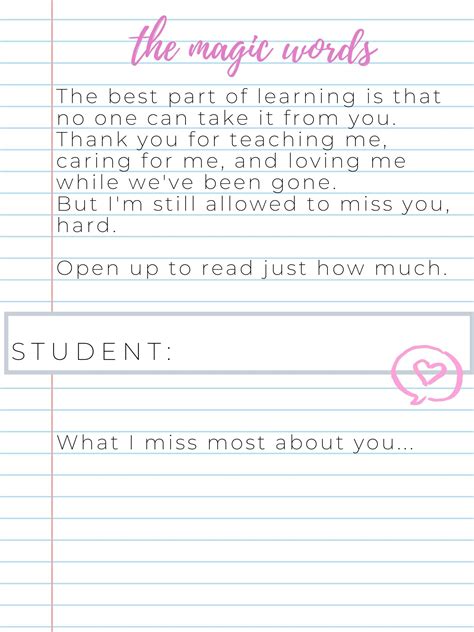 the magic words
The best part of learning is that
no one can take it from you.
Thank you for teaching me,
caring for me, and loving me
while we've been gone.
But I'm still allowed to miss you,
hard.
Open up to read just how much.
STUDENT:
What I miss most about you...